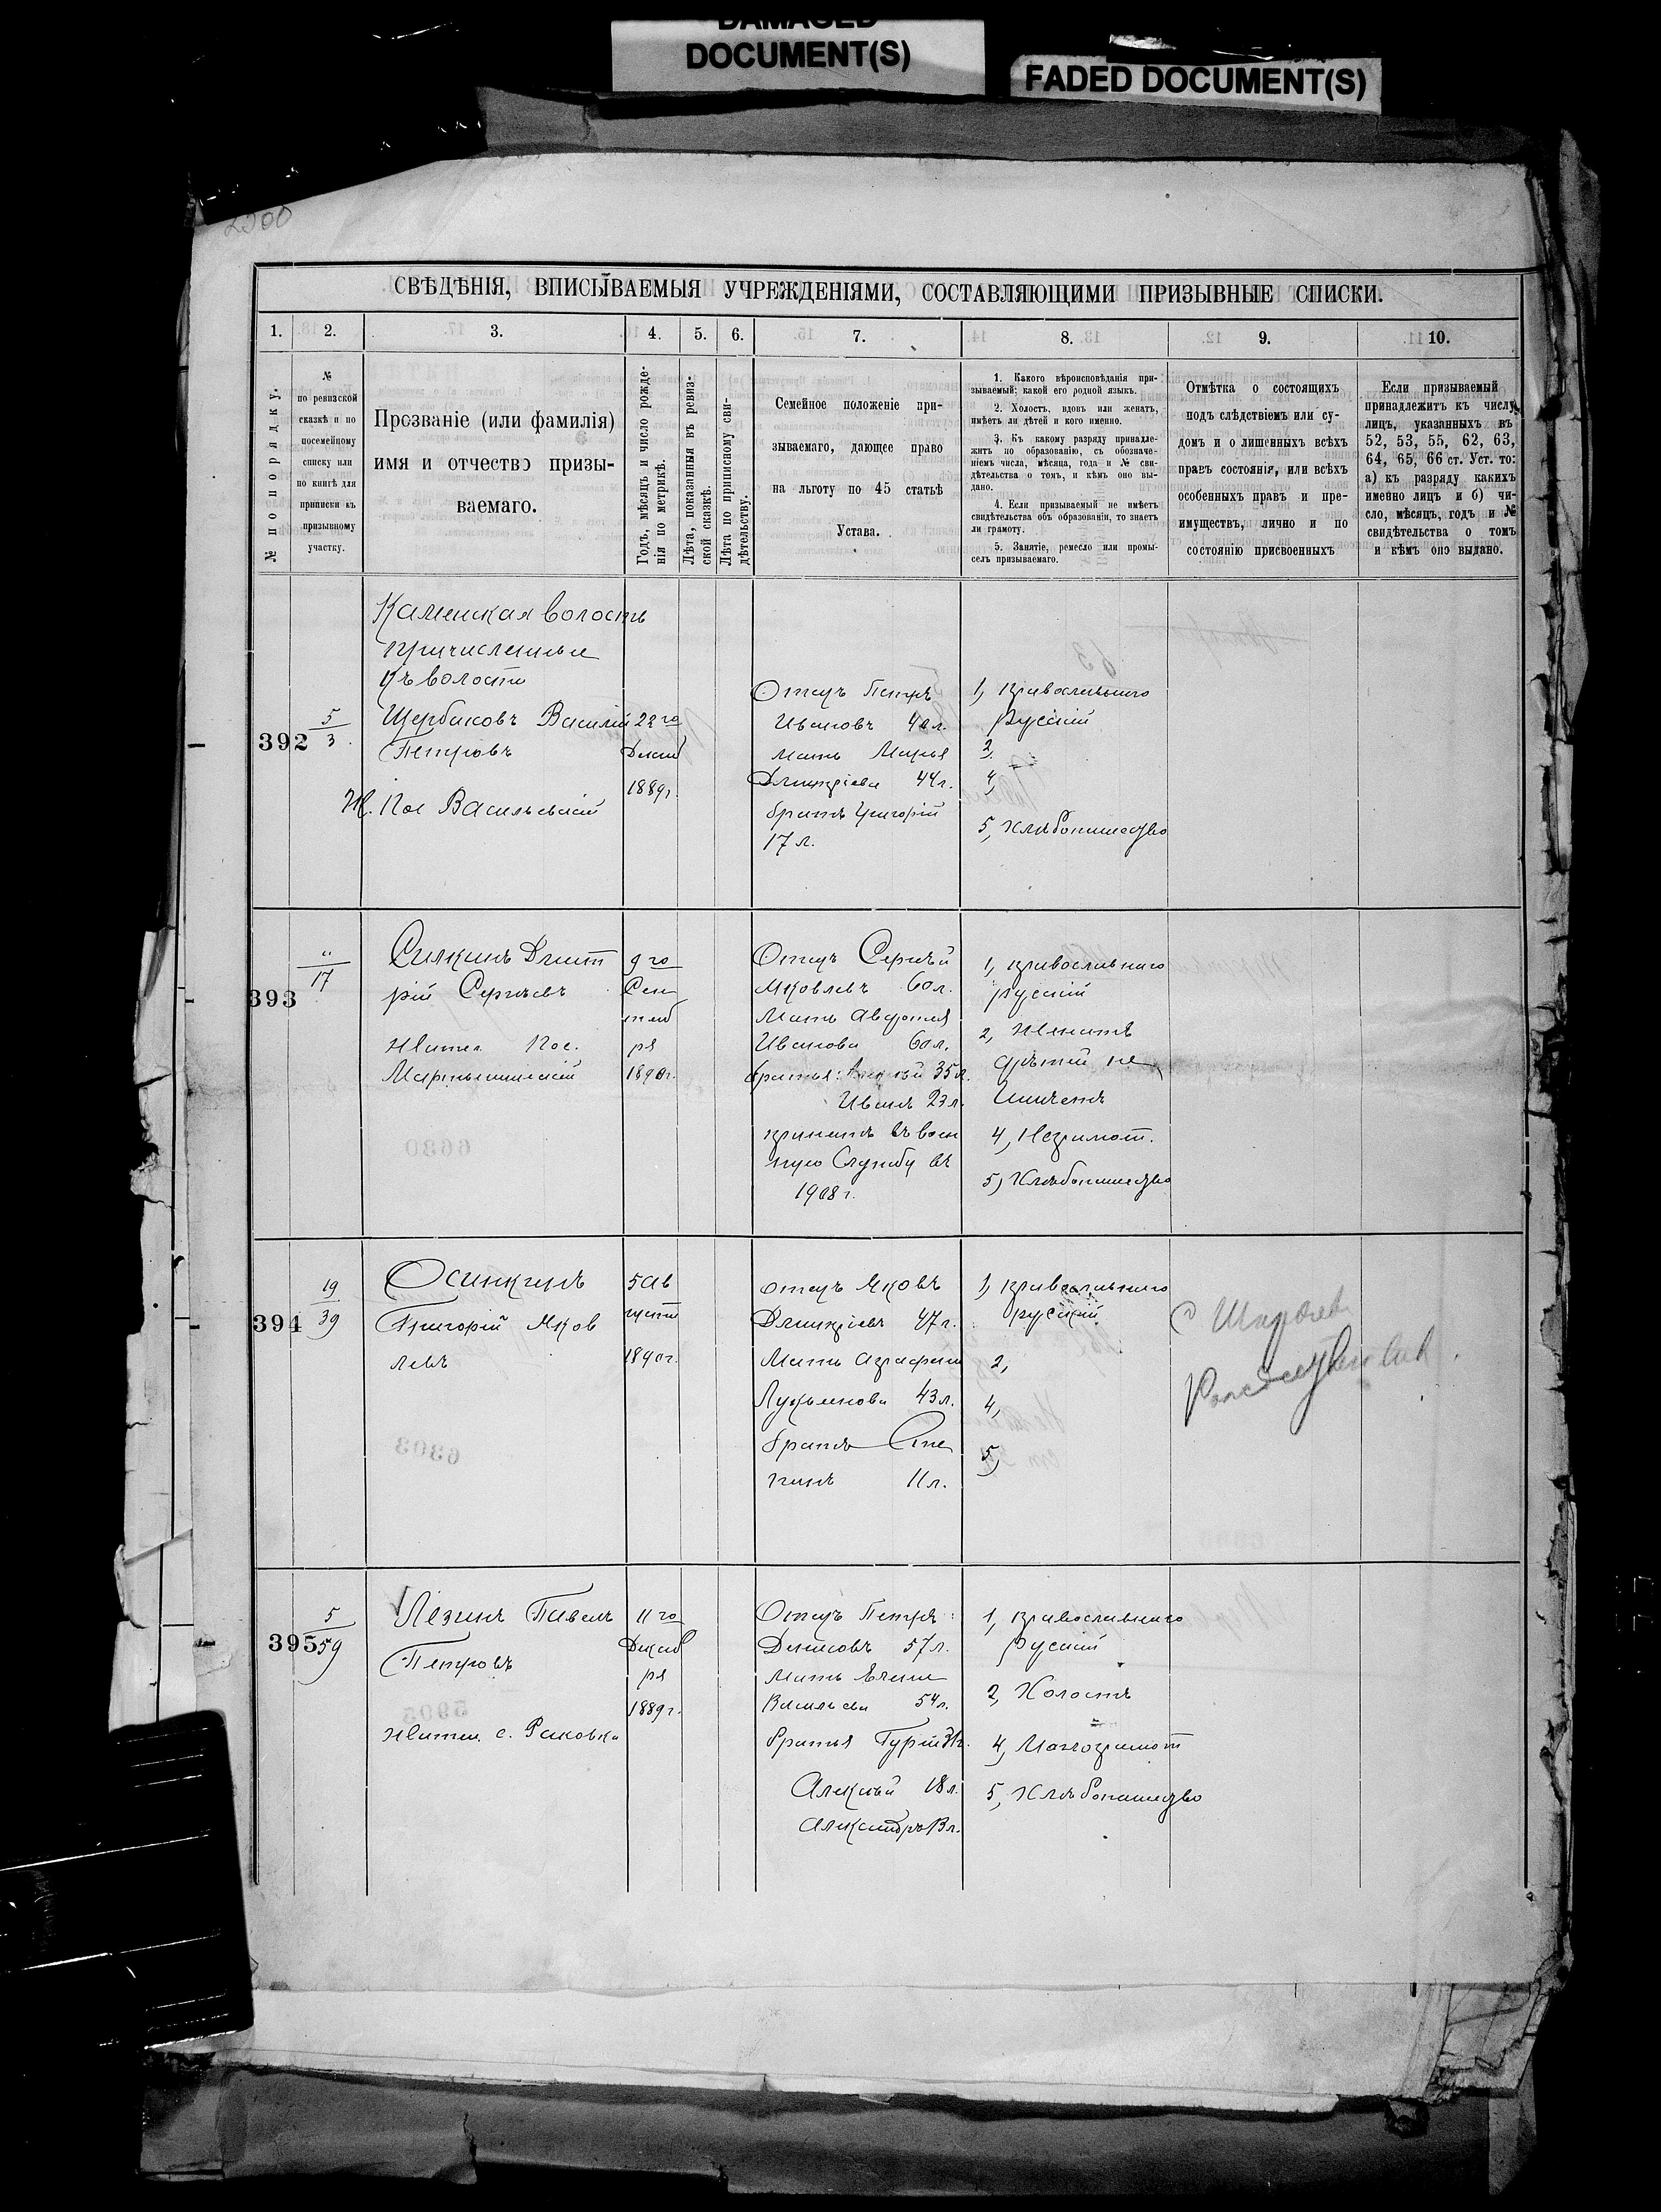 DAMAGED
DOCUMENT(S)
FADED DOCUMENT(S)
СВѢДѢНІЯ, ВПИСЫВАЕМЫЯ УЧРЕЖДЕНІЯМИ, СОСТАВЛЯЮЩИМИ ПРИЗЫВНЫЕ СПИСКИ.
1. 2. 3. 4. 5. 6. 7. 8. 9. 10.
№ по порядку.
№
по ревизской
сказкѣ и по
посемейному
списку или
по книгѣ для
приписки къ
призывному
участку.
Прозваніе (или фамилія)
имя и отчество призы-
ваемаго.
Годъ, мѣсяцъ и число рожде-
нія по метрикѣ.
Лѣта, показанныя въ ревиз-
ской сказкѣ.
Лѣта по приписному сви-
дѣтельству.
Семейное положеніе при-
зываемаго, дающее право
на льготу по 45 статьѣ
Устава.
1. Какого вѣроисповѣданія при-
зываемый; какой его родной языкъ.
2. Холостъ, вдовъ или женатъ,
имѣетъ ли дѣтей и кого именно.
3. Къ какому разряду принадле-
житъ по образованію, съ обозначе-
ніемъ числа, мѣсяца, года и № сви-
дѣтельства о томъ, и кѣмъ оно вы-
дано.
4. Если призываемый не имѣетъ
свидѣтельства объ образованіи, то знаетъ
ли грамоту.
5. Занятіе, ремесло или промы-
селъ призываемаго.
Отмѣтка о состоящихъ
подъ слѣдствіемъ или су-
домъ и о лишенныхъ всѣхъ
правъ состоянія, или всѣхъ
особенныхъ правъ и пре-
имуществъ, лично и по
состоянію присвоенныхъ
Если призываемый
принадлежитъ къ числу
лицъ, указанныхъ въ
52, 53, 55, 62, 63,
64, 65, 66 ст. Уст. то:
а) къ разряду какихъ
именно лицъ и б) чи-
сло, мѣсяцъ, годъ и №
свидѣтельства о томъ
и кѣмъ оно выдано.
Каменская волость
причисленные
къ волости
392
5
3
Щербаковъ Василій
Петровъ
Ж. Пос Васильевскій
22 го
Декаб
1889г.
Отецъ Петръ
Ивановъ л.
мать Марья
Дмитріева 44г.
братъ Григорій
17 л.
1, православнаго
Русскій
2,
4,
5, хлѣбопашество
393
"
17
Силкинъ Дмит
рій Сергѣевъ
Жител Пос.
Мартышинскій
9 го
Сен
тяб
ря
1890г.
Отецъ Сергѣй
Яковлевъ 60л.
Мать Авдотья
Иванова 60л.
братья: 35л.
Иванъ 23л.
принятъ въ воен
ную Службу въ
1908г.
1, православнаго
русскій
2, Женатъ
дѣтей не
имѣетъ
4, Неграмот.
5, Хлѣбопашество
394
19
39
Осинкинъ
Григорій Яков
левъ
5 Ав
густ
1890г.
отецъ Яковъ
Дмитріевъ 47г.
Мать Аграфена
Лукьянова 43л.
братъ Сте
панъ 11л.
1, православнаго
русскій
2,
4,
5,
395
5
59
Лезинъ Павелъ
Петровъ
Жител. с. Раковка
11 го
Декаб
ря
1889г.
Отецъ Петръ
Денисовъ 57л.
Мать Елена
Васильева 54л.
братья Гурій
Алексѣй 18л.
Александръ 13л.
1, православнаго
русскій
2, Холостъ
4, Малограмот
5, Хлѣбопашество